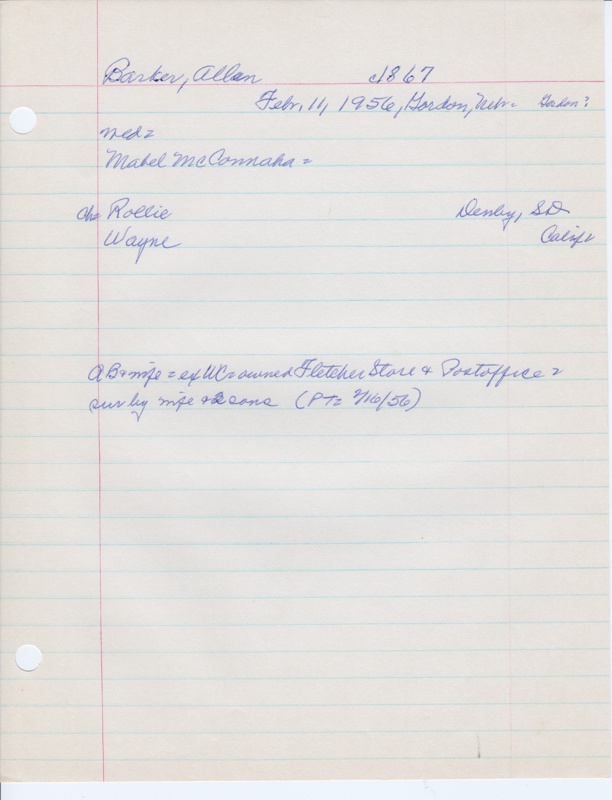 Barker, Allen c1867
Febr. 11, 1956, Gordon, Nebr= Gordon?
med=
Mabel McConnaha=
Chn Rollie Denby, SD
Wayne Calif=
AB & wife = ex WC = owned Fletcher Store & Postoffice =
sur by wife & 2 sons (PT= 2/16/56)